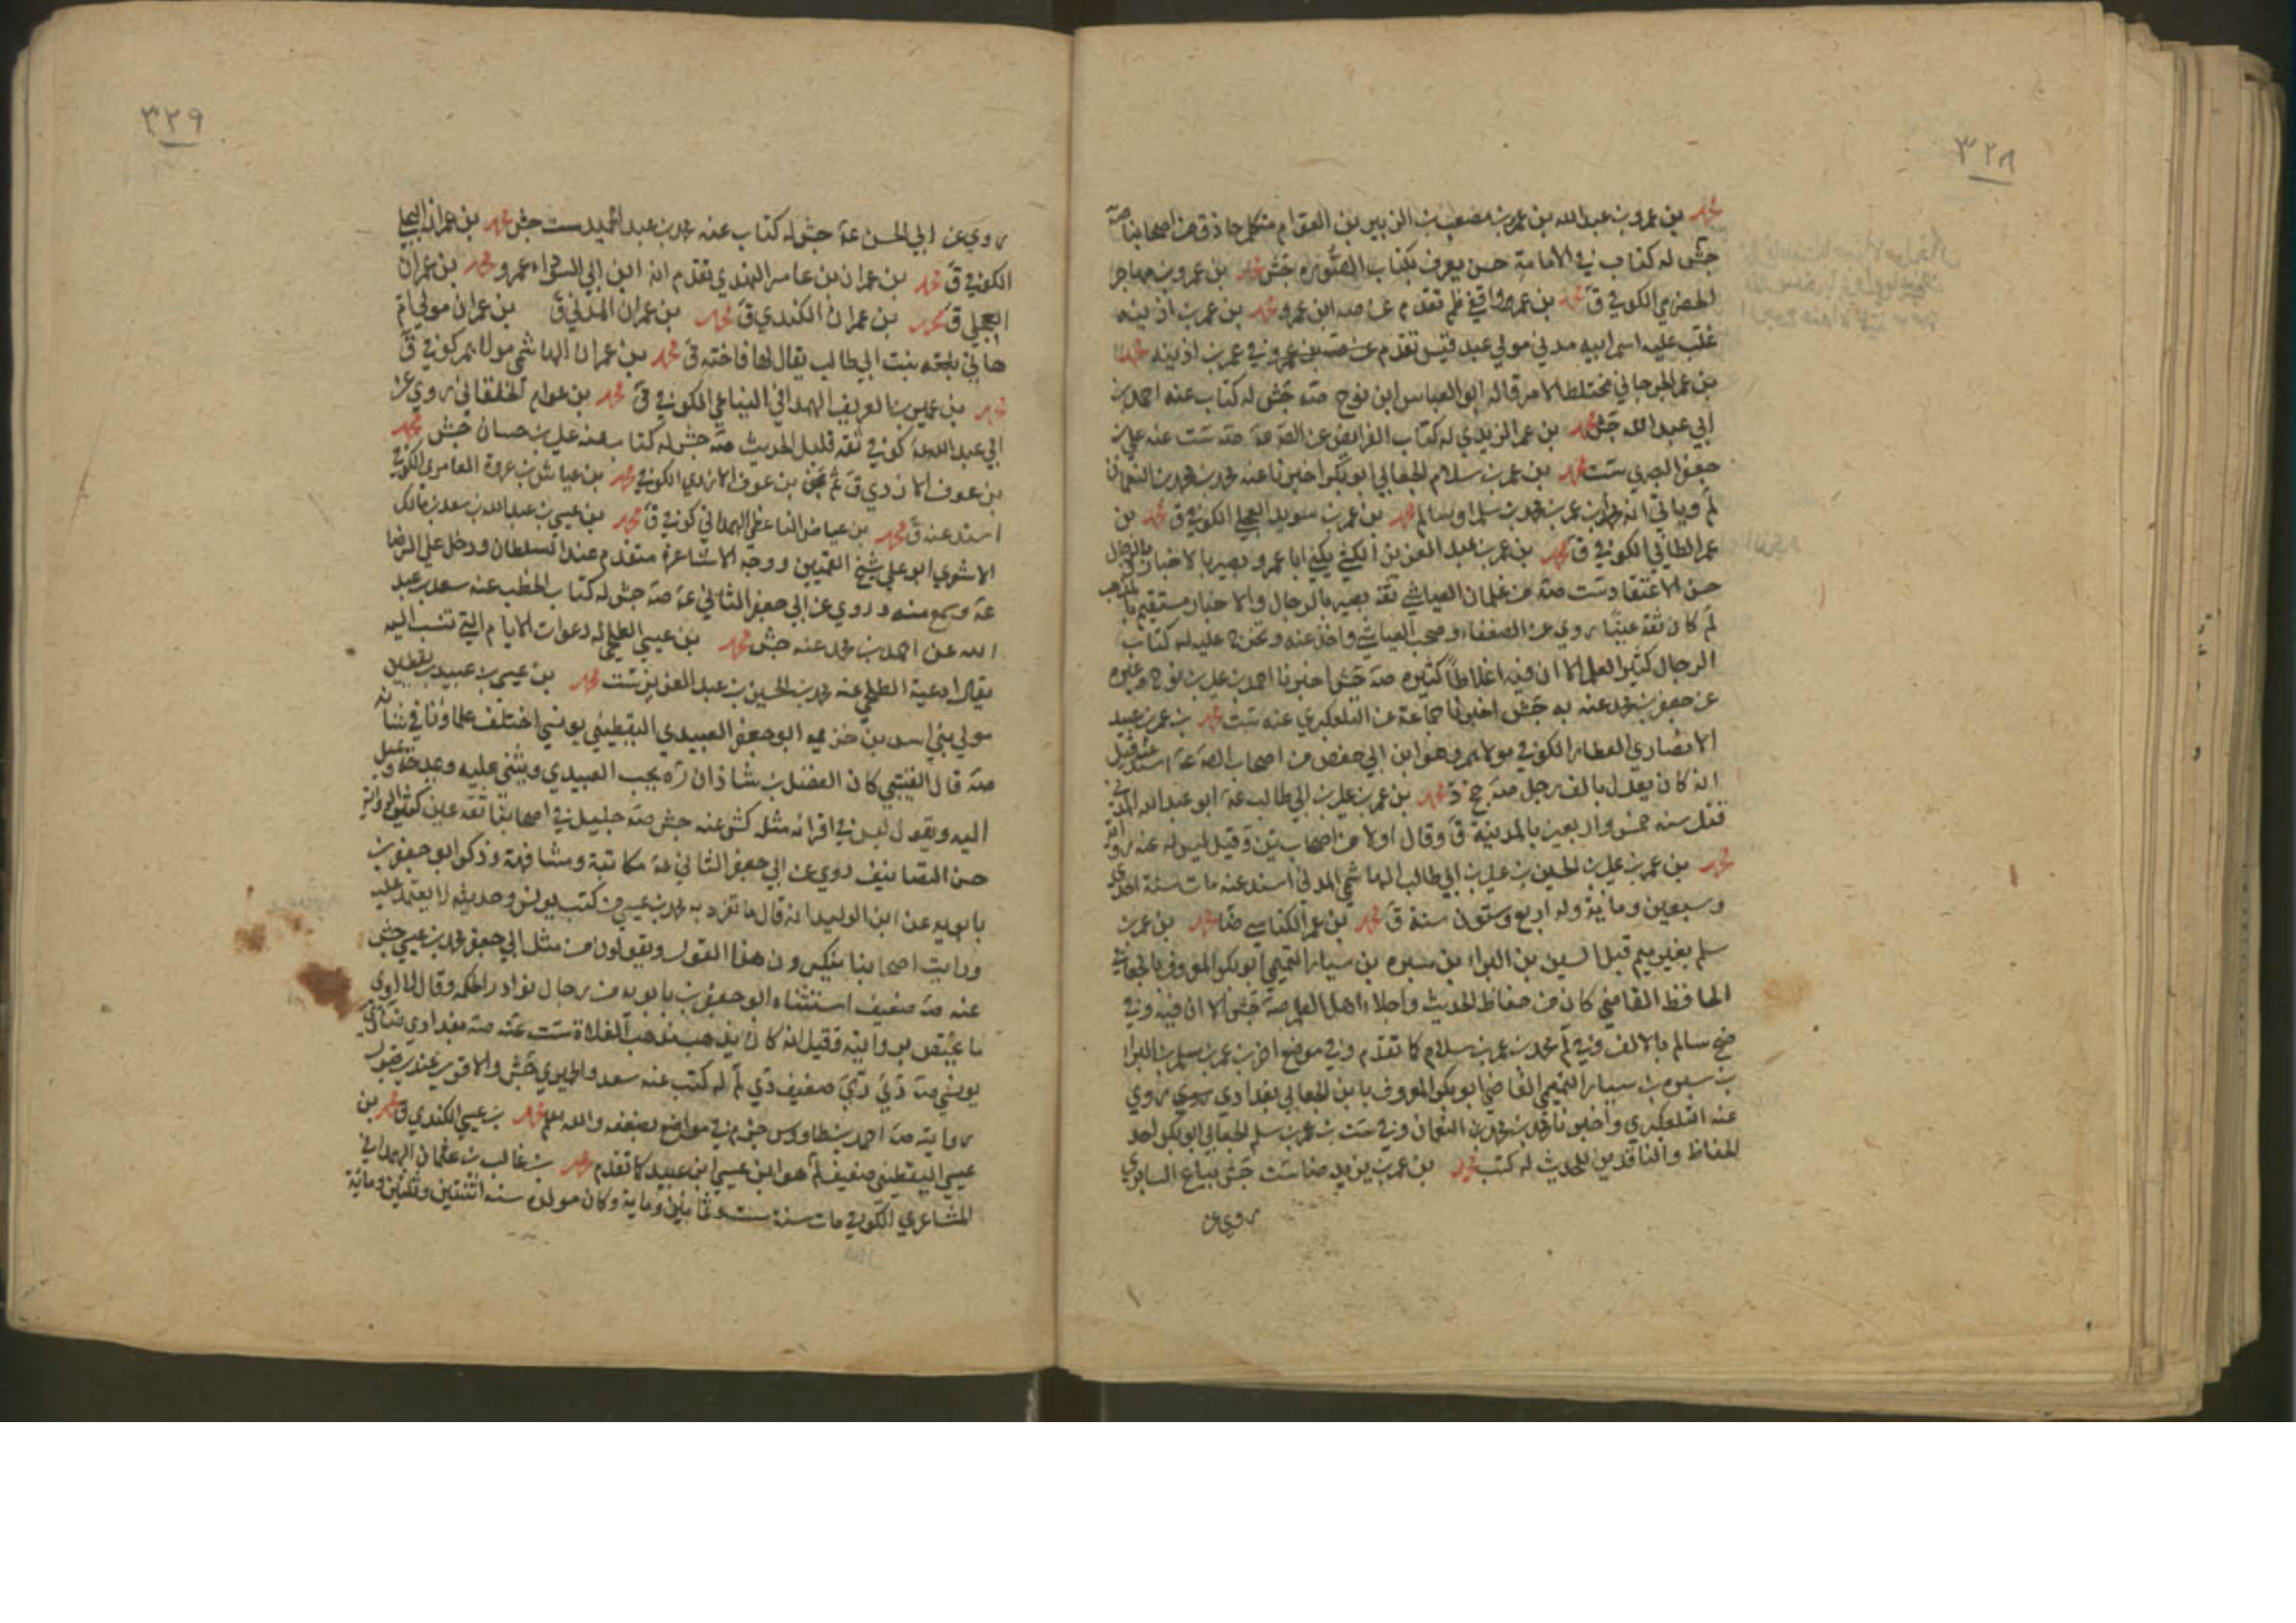 ٣٢٨
محمد بن عمرو بن عبد الله بن عمر بن مصعب بن الزبير بن العوام متكلم حاذق من اصحابنا صه
جش له كتاب في الامامة حسن يعرف بكتاب الصورة جش محمد بن عمرو بن مهاجر
الحضرمي الكوفي ق محمد بن عمرو واقفي ظم تقدم عن صه ابن عمر و محمد بن عمر بن اذينه
غلب عليه اسم ابيه مدني مولي عبد قيس تقدم عن صه بن عمرو في عمر بن اذينه محمد
بن عمر الجرجاني مختلط الامر قاله ابو العباس ابن نوح صه جش له كتاب عنه احمد بن
ابي عبد الله جش محمد بن عمر الزيدي له كتاب الفرايض عن الص عه صه ست عنه علي بن
جعفر البصري ست محمد بن عمر بن سلام الجعابي ابو بكر اخبرنا عنه محمد بن محمد بن النعمان
لم وياتي انه محمد بن عمر بن محمد بن سلم او سالم محمد بن عمر بن سويد العجلي الكوفي ق محمد بن
عمر الطائي الكوفي ق محمد بن عمر بن عبد العزيز الكشي يكني ابا عمرو بصير بالاخبار وبالرجال
حسن الاعتقاد ست صه من غلمان العياشي ثقة بصير بالرجال والاخبار مستقيم المذهب
لم كان ثقة عينا روي عن الضعفاء وصحب العياشي واخذ عنه وتخرج عليه له كتاب
الرجال كثير العلم الا ان فيه اغلاطا كثيره صه جش اخبرنا احمد بن علي بن نوح وغيره
عن جعفر بن محمد عنه به جش اخبرنا جماعة عن التلعكبري عنه ست محمد بن عمر بن عبيد
الانصاري العطار الكوفي مولاهم وهو ابن ابي حفص من اصحاب الص عه اسند عنه قيل
انه كان يعدل بالف رجل صه جخ د محمد بن عمر بن علي بن ابي طالب عه ابو عبد الله المدني
قتل سنه خمس واربعين بالمدينة ق وقال اولا من اصحاب ين وقيل ليس له عنه رواية
محمد بن عمر بن علي بن الحسين بن علي بن ابي طالب الهاشمي المدني اسند عنه مات سنة احدي
وسبعين ومائة وله اربع وستون سنة ق محمد بن عمر الكناسي ضا محمد بن عمر بن
سلم بغير ميم قبل السين بن البراء بن سبره بن سيار التميمي ابو بكر المعروف بالجعابي
الحافظ القاضي كان من حفاظ الحديث واجلاء اهل العلم صه جش الا ان فيه وفي
ضح سالم بالالف وفي لم محمد بن عمر بن سلام كما تقدم وفي موضع اخر بن عمر بن سلم بن البراء
بن سبره بن سيار التميمي القاضي ابو بكر المعروف بابن الجعابي بغدادي روي روي
عنه التلعكبري واخبرنا محمد بن محمد بن النعمان وفي ست بن عمر بن سلم الجعابي ابو بكر احد
الحفاظ والناقدين للحديث له كتب محمد بن عمر بن يزيد ضا ست جش بياع السابري
روي عن
٣٢٩
روي عن ابي الحسن عه جش له كتاب عنه محمد بن عبد الحميد ست جش محمد بن عمران البجلي
الكوفي ق محمد بن عمران بن عامر الهندي تقدم انه ابن ابي السوداء عمرو محمد بن عمران
العجلي ق محمد بن عمران الكندي ق محمد بن عمران المدني ق بن عمران مولي ام
هاني بنت ابي طالب يقال لها فاخته ق محمد بن عمران الهاشمي مولاهم كوفي ق
محمد بن عمير بن العريف الهمداني الكوفي ق محمد بن عوام الخلقاني روي عن
ابي عبد الله عه كوفي ثقه قليل الحديث صه جش له كتاب عنه علي بن حسان جش محمد
بن عوف الازدي ق ثم بن عوف الازدي الكوفي محمد بن عياش بن عروة العامري الكوفي
اسند عنه ق محمد بن عياض الناعطي الهمداني كوفي ق محمد بن عيسي بن عبد الله بن سعد بن مالك
الاشعري ابو علي شيخ القميين ووجه الاشاعرة متقدم عند السلطان ودخل علي الرضا
عه وسمع منه وروي عن ابي جعفر الثاني عه صه جش له كتاب الخطب عنه سعد بن عبد
الله عن احمد بن محمد عنه جش محمد بن عيسي الطلحي له دعوات الايام التي تنسب اليه
يقال ادعية الطلحي عنه محمد بن الحسين بن عبد العزيز ست محمد بن عيسي بن عبيد بن يقطين
مولي بني اسد بن خزيمه ابو جعفر العبيدي اليقطيني يونسي اختلف علماؤنا في شانه
صه قال القتيبي كان الفضل بن شاذان ره يحب العبيدي ويثني عليه ويمدحه ويميل
اليه ويقول ليس في اقرانه مثله كش عنه جش صه جليل في اصحابنا ثقه عين كثير الرواية
حسن التصانيف روي عن ابي جعفر الثاني عه مكاتبة ومشافهة وذكر ابو جعفر بن
بابويه عن ابن الوليد انه قال ما تفرد به محمد بن عيسي من كتب يونس وحديثه لا يعتمد عليه
ورايت اصحابنا ينكرون هذا القول ويقولون من مثل ابي جعفر محمد بن عيسي جش
عنه صه ضعيف استثناه ابو جعفر بن بابويه من رجال نوادر الحكمه وقال لا اروي
ما يختص بروايته وقيل انه كان يذهب مذهب الغلاة ست عنه صه بغدادي
يونسي صه دي ري ضعيف دي لم له كتب عنه سعد والحميري جش والاقوي عندي قبول
روايته صه احمد بن طاووس جزم في مواضع بضعفه والله يعلم محمد بن عيسي الكندي ق محمد بن
عيسي اليقطيني ضعيف لم هو ابن عيسي ابن عبيد كما تقدم محمد بن غالب بن عثمان الهمداني
المشاعري الكوفي مات سنة ست وثمانين وماية وكان مولده سنه اثنتين وثلثين ومائة